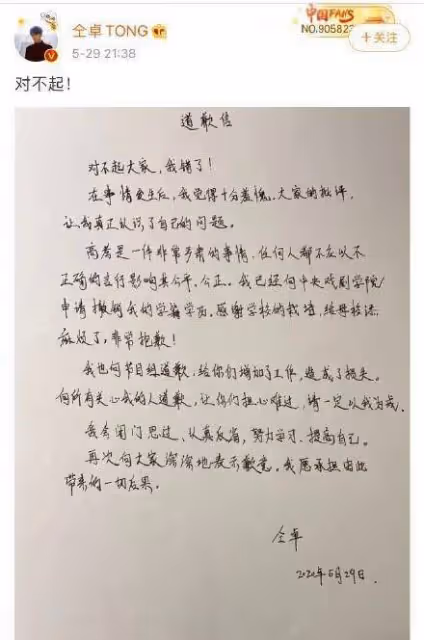 仝卓TONG
5-29 21:38
中国FANS
NO.905823
+关注
对不起!
道歉信
对不起大家,我错了!
在事情发生后,我觉得十分羞愧,大家的批评,
让我真正认识了自己的问题。
高考是一件非常严肃的事情,任何人都不应以不
正确的言行影响其公平、公正。我已经向中央戏剧学院
申请撤销我的学籍学历。感谢学校的栽培,给母校添
麻烦了,非常抱歉!
我也向节目组道歉,给你们增加了工作,造成了损失。
向所有关心我的人道歉,让你们担心难过,请一定以我为戒。
我会闭门思过、认真反省,努力学习、提高自己。
再次向大家深深地表示歉意。我愿承担由此
带来的一切后果。
仝卓
2020年5月29日.